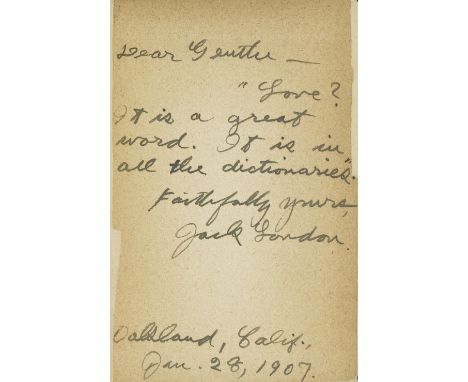 Dear Genthe —
"Love?
It is a great
word. It is in
all the dictionaries".
Faithfully yours,
Jack London.
Oakland, Calif.,
Jan. 28, 1907.